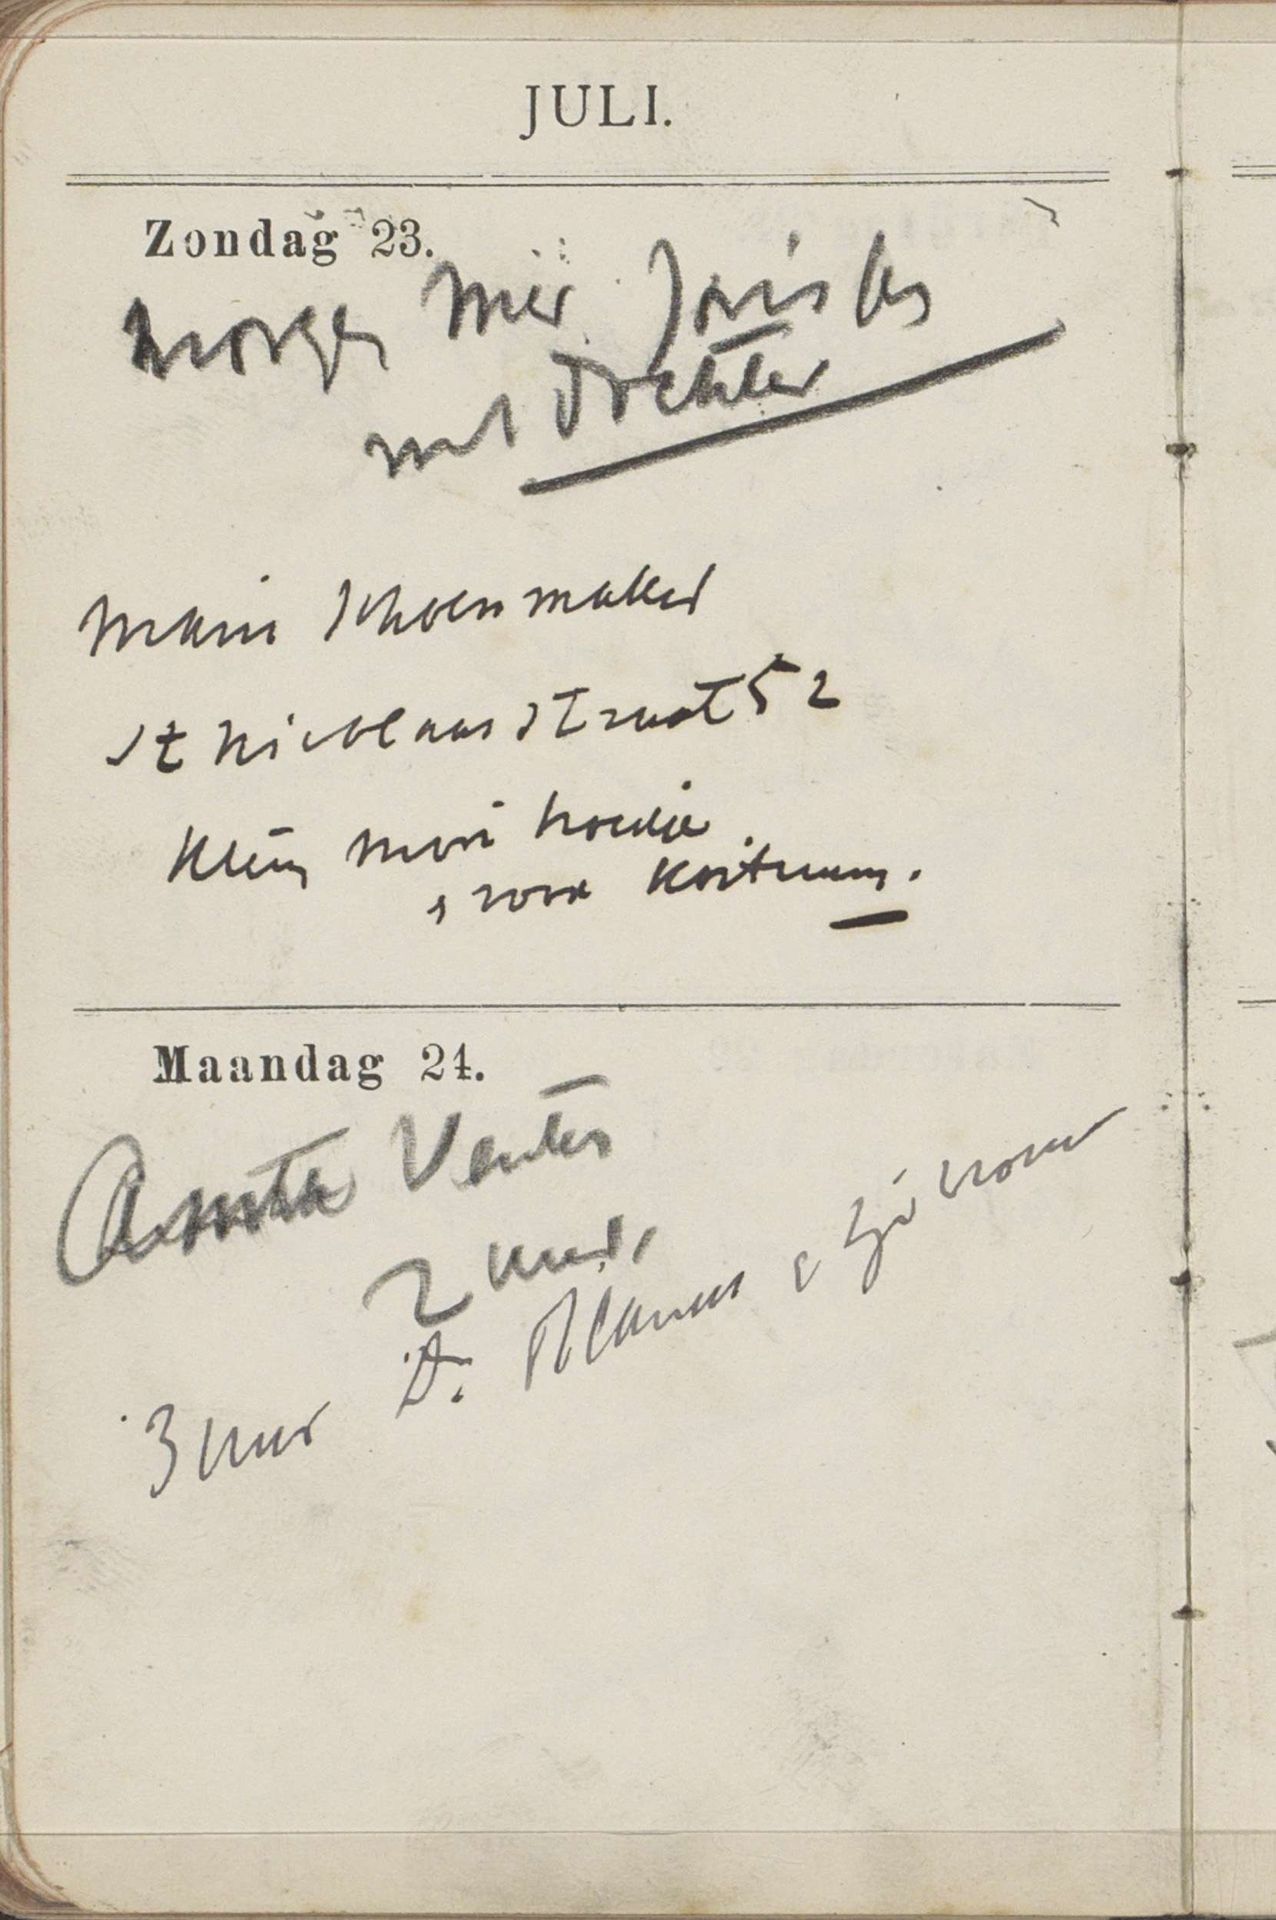 JULI.
Zondag 23.
morgen Mier Joris
met Dochter
Marie Schoenmaker
St Nicolaasstraat 52
Klein mooi hoedje
rose Kostuum.
Maandag 24.
Anita Venter
2 uur.
3 uur Dr. Plancus &